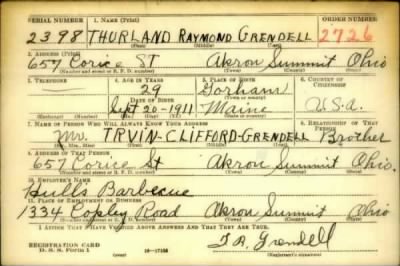 SERIAL NUMBER 1. NAME (Print) ORDER NUMBER
2398 THURLAND RAYMOND GRENDELL 2726
(First) (Middle) (Last)
2. ADDRESS (Print)
657 Corice ST Akron Summit Ohio
(Number and street or R. F. D. number) (Town) (County) (State)
3. TELEPHONE 4. AGE IN YEARS 5. PLACE OF BIRTH 6. COUNTRY OF CITIZENSHIP
29 Gorham
DATE OF BIRTH (Town or county)
Sept 20-1911 Maine U.S.A.
(Mo.) (Day) (Yr.) (State or country)
7. NAME OF PERSON WHO WILL ALWAYS KNOW YOUR ADDRESS 8. RELATIONSHIP OF THAT PERSON
Mr. IRVIN-CLIFFORD-GRENDELL Brother
(Mr., Mrs., Miss) (First) (Middle) (Last)
9. ADDRESS OF THAT PERSON
657 Corice St Akron Summit Ohio.
(Number and street or R. F. D. number) (Town) (County) (State)
10. EMPLOYER'S NAME
Hulls Barbecue
11. PLACE OF EMPLOYMENT OR BUSINESS
1334 Copley Road Akron Summit Ohio
(Number and street or R. F. D. number) (Town) (County) (State)
I AFFIRM THAT I HAVE VERIFIED ABOVE ANSWERS AND THAT THEY ARE TRUE.
REGISTRATION CARD
D. S. S. Form 1 16-17105 (Registrant's signature)
Grendell